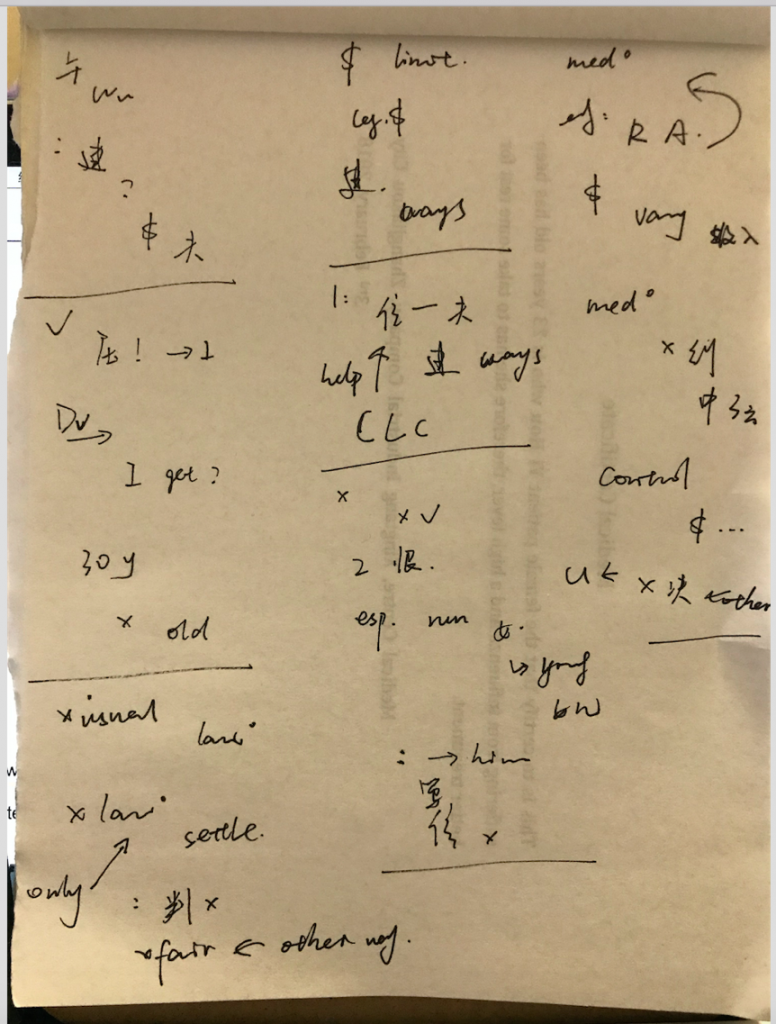 午 Wu
: 建
?
$ 夫
✓
压! → I
Dv →
I get?
30 y
x old
x usual
law°
x law°
settle.
only
: 判 x
x fair ← other way.
$ limit.
leg. $
建.
ways
1: 信一夫
help ↑ 建 ways
CLC
x
x ✓
2 恨.
esp. run 女.
↳ young
bw
: → him
写
信 x
med°
eg: R A.
$
vary 收入
med°
x 纠
中 调
Control
$ ...
U ← x 决 ← other